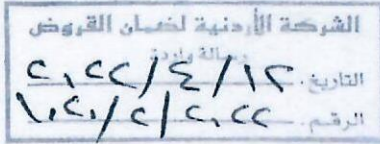 الشركة الأردنية لضمان القروض
رسالة واردة
التاريخ. ٢٠٢٢/٤/١٢
الرقم.